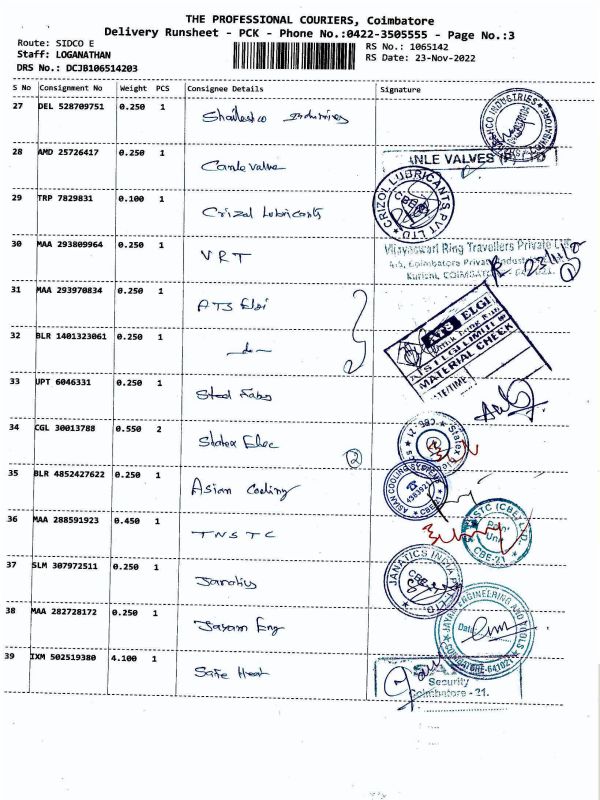 THE PROFESSIONAL COURIERS, Coimbatore
Delivery Runsheet - PCK - Phone No.:0422-3505555 - Page No.:3
Route: SIDCO E
RS No.: 1065142
Staff: LOGANATHAN
RS Date: 23-Nov-2022
DRS No.: DCJB106514203
S No Consignment No Weight PCS Consignee Details Signature
27 DEL 528709751 0.250 1
28 AMD 25726417 0.250 1 Canle Valve
ANLE VALVES (P) LTD
29 TRP 7829831 0.100 1 Crizol Lubricants
CRIZOL LUBRICANTS PVT LTD
CBE
30 MAA 293809964 0.250 1 VRT
Vijayeswari Ring Travellers Private Ltd
4-5, Coimbatore Private Industrial
Kurichi, COIMBATORE 641021.
23/11/22
1
31 MAA 293970834 0.250 1 ATS Elgi
ATS ELGI
32 BLR 1401323061 0.250 1 do
ATS ELGI LIMITED
MATERIAL CHECK
DATE/TIME
33 UPT 6046331 0.250 1 Steel Fabs
34 CGL 30013788 0.550 2 Statex Elec
2
Statex
CBE. 21
35 BLR 4852427622 0.250 1 Asian Cooling
ASIAN COOLING SYSTEMS
CBE-21
36 MAA 288591923 0.450 1 TNSTC
STC (CBE) LTD
Unit
CBE-21
37 SLM 307972511 0.250 1 Janatics
JANATICS INDIA P LTD
38 MAA 282728172 0.250 1 Jayam Eng
JAYAM ENGINEERING AND TOOLS
Date
COIMBATORE-641021
39 IXM 502519380 4.100 1 Safe Heat
Security
Coimbatore - 21.